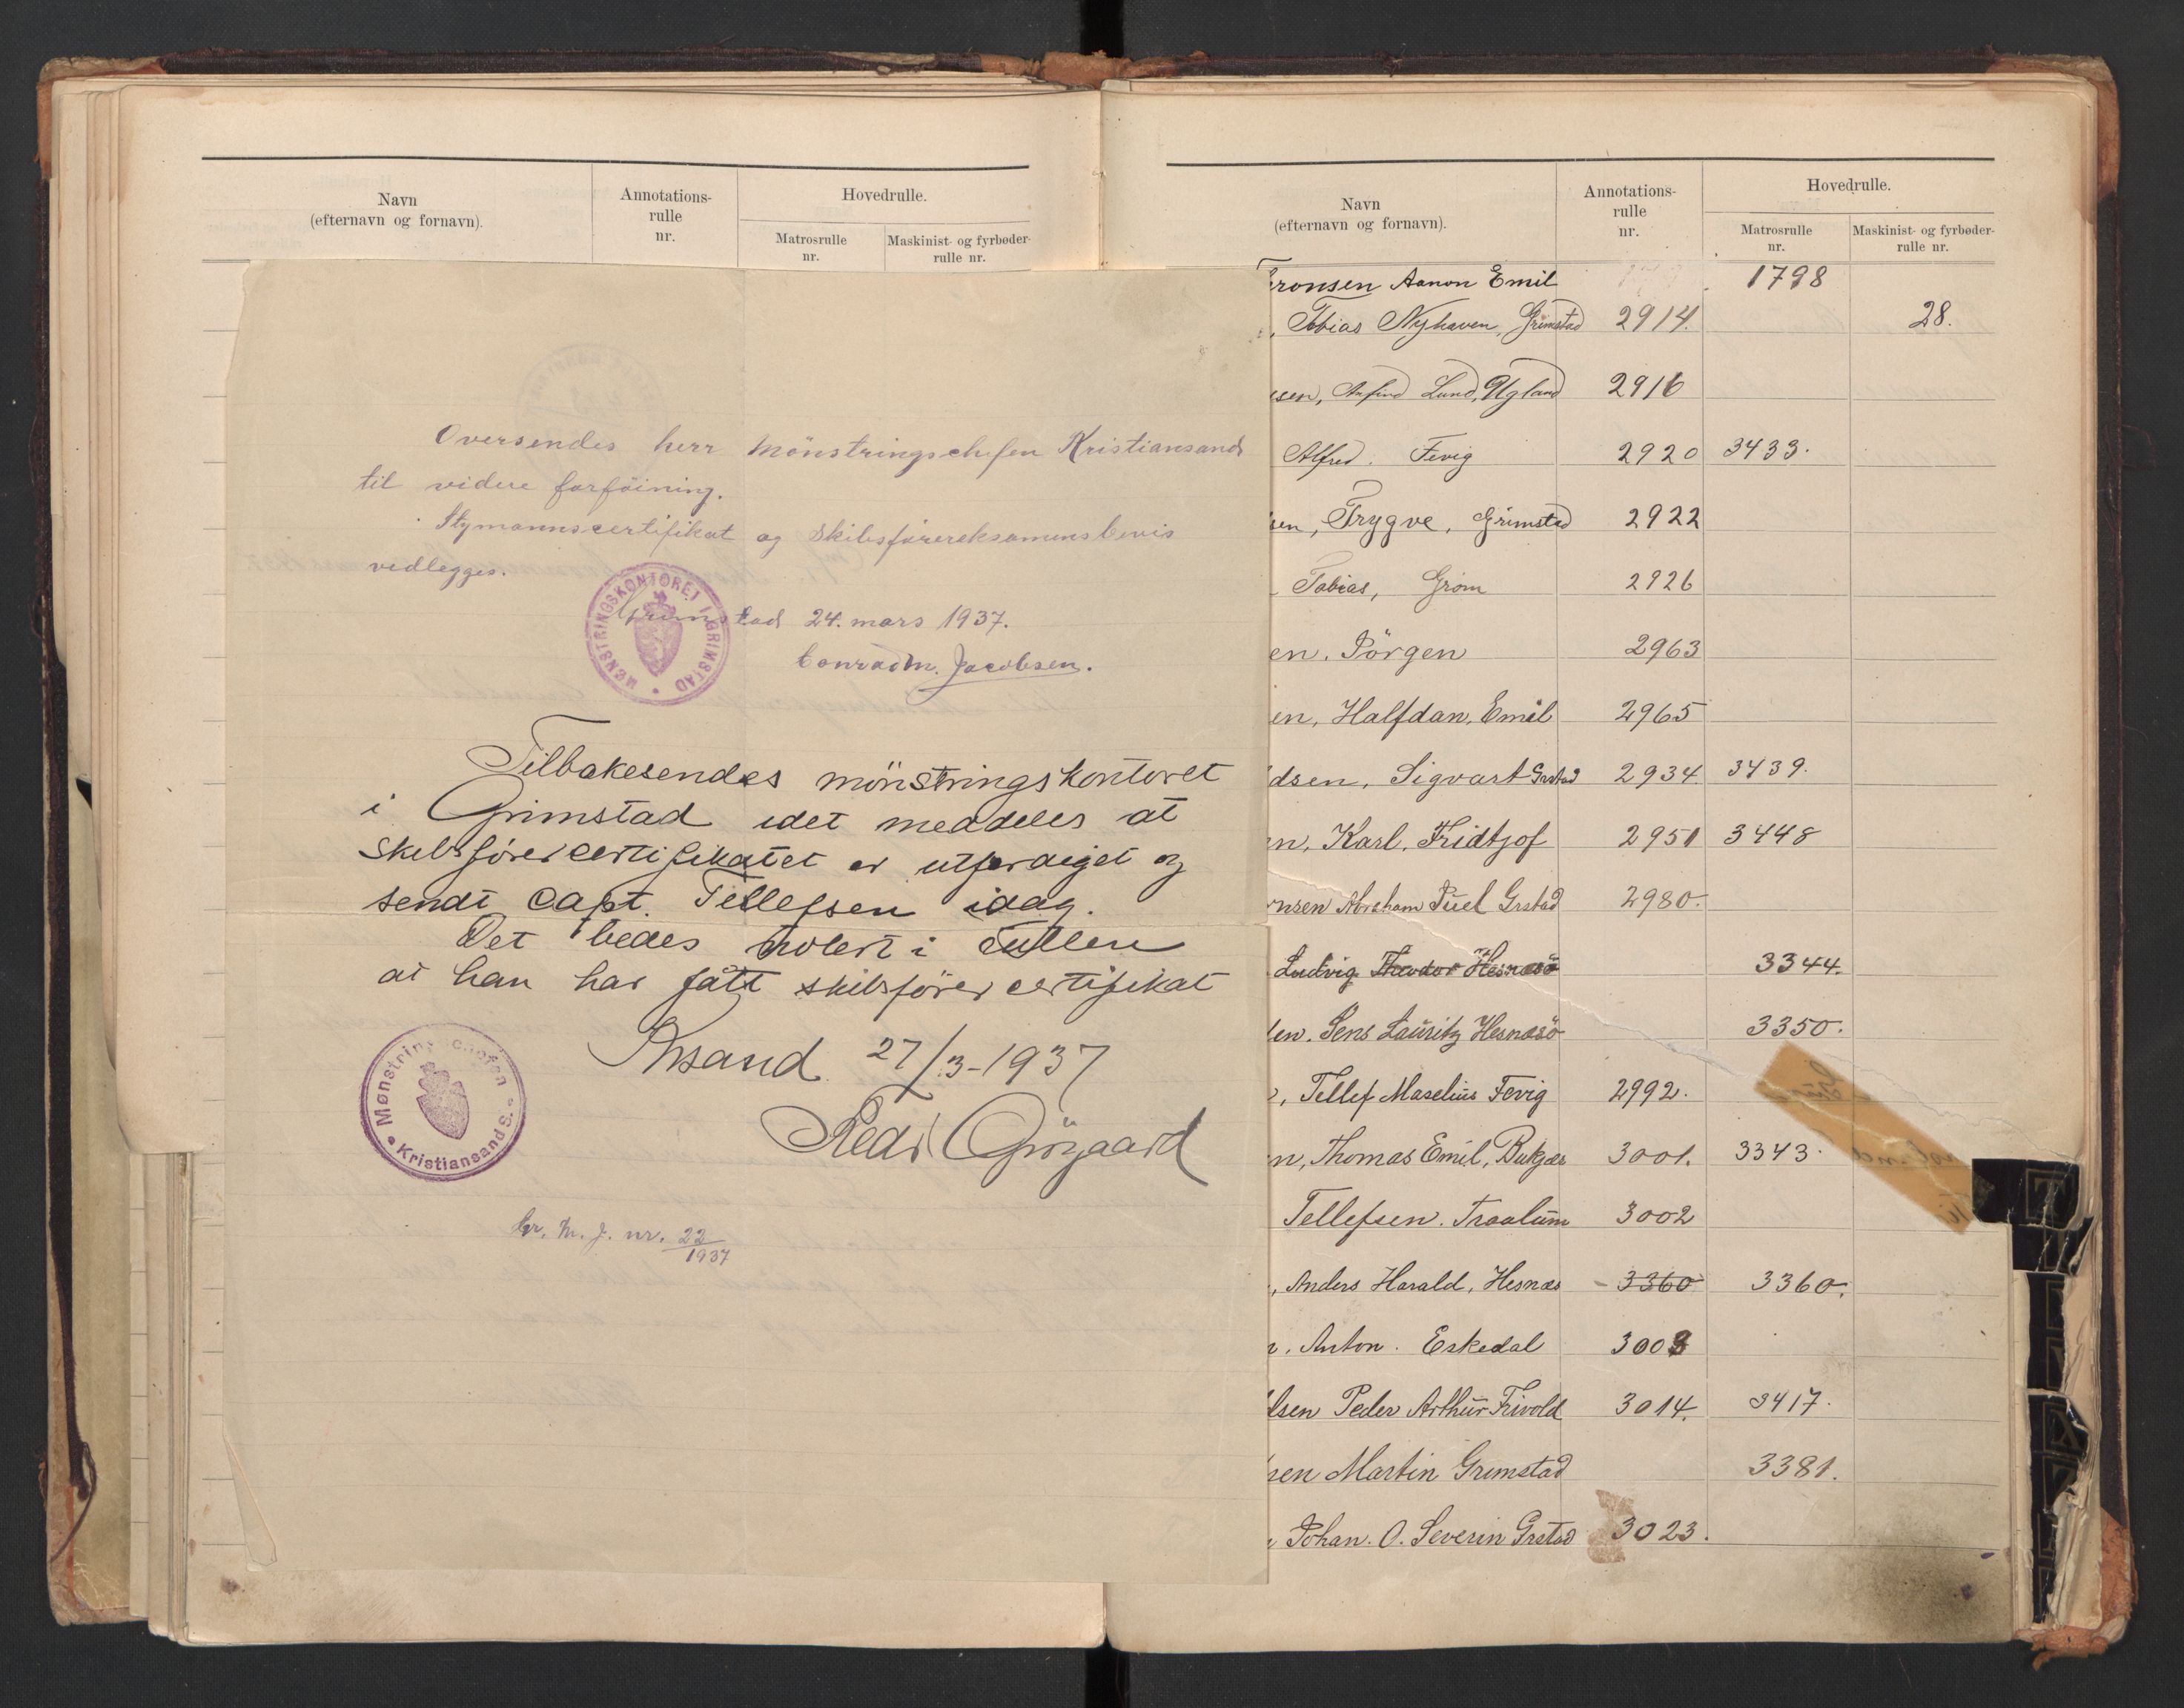 Navn
(efternavn og fornavn).
Annotations-
rulle
nr.
Hovedrulle.
Matrosrulle
nr.
Maskinist- og fyrbøder-
rulle nr.
Oversendes herr Mönstringschefen Kristiansand
til videre forföining.
Stymannscertifikat og Skibsförereksamensbevis
vedlegges.
Grimstad 24. mars 1937.
Conrad M. Jacobsen.
MØNSTRINGSKONTORET I GRIMSTAD
Tilbakesendes mönstringskontoret
i Grimstad idet meddeles at
skibsförercertifikatet er utferdiget og
sendt Capt. Tellefsen idag.
Det bedes notert i rullen
at han har fått skibsförercertifikat
Krsand 27/3-1937
Mønstringschefen Kristiansand S.
Gr. M. J. nr. 22/1937
Navn
(efternavn og fornavn).
Annotations-
rulle
nr.
Hovedrulle.
Matrosrulle
nr.
Maskinist- og fyrbøder-
rulle nr.
ronsen Aanon Emil 1798
Tobias Nyhaven, Grimstad 2914. 28.
sen, Anfind Lund, Ugland 2916
Alfred. Fevig 2920 3433.
sen, Trygve, Grimstad 2922
Tobias, Grom 2926
en, Jörgen 2963
en, Halfdan, Emil 2965
dsen, Sigvart Grstad 2934 3439.
n, Karl, Fridtjof 2951 3448
nsen Abraham Juel Grstad 2980.
Ludvig Theodor Hesnæsö 3344.
en, Jens Lauritz Hesnæsö 3350.
, Tellef Maselius Fevig 2992.
n, Thomas Emil, Bukjær 3001. 3343.
Tellefsen. Traalum 3002
, Anders Harald, Hesnæs - 3360 3360.
, Anton. Eskedal 3003
lsen Peder Arthur Frivold 3014. 3417.
sen Martin Grimstad 3381.
Johan. O. Severin Grstad 3023.
T